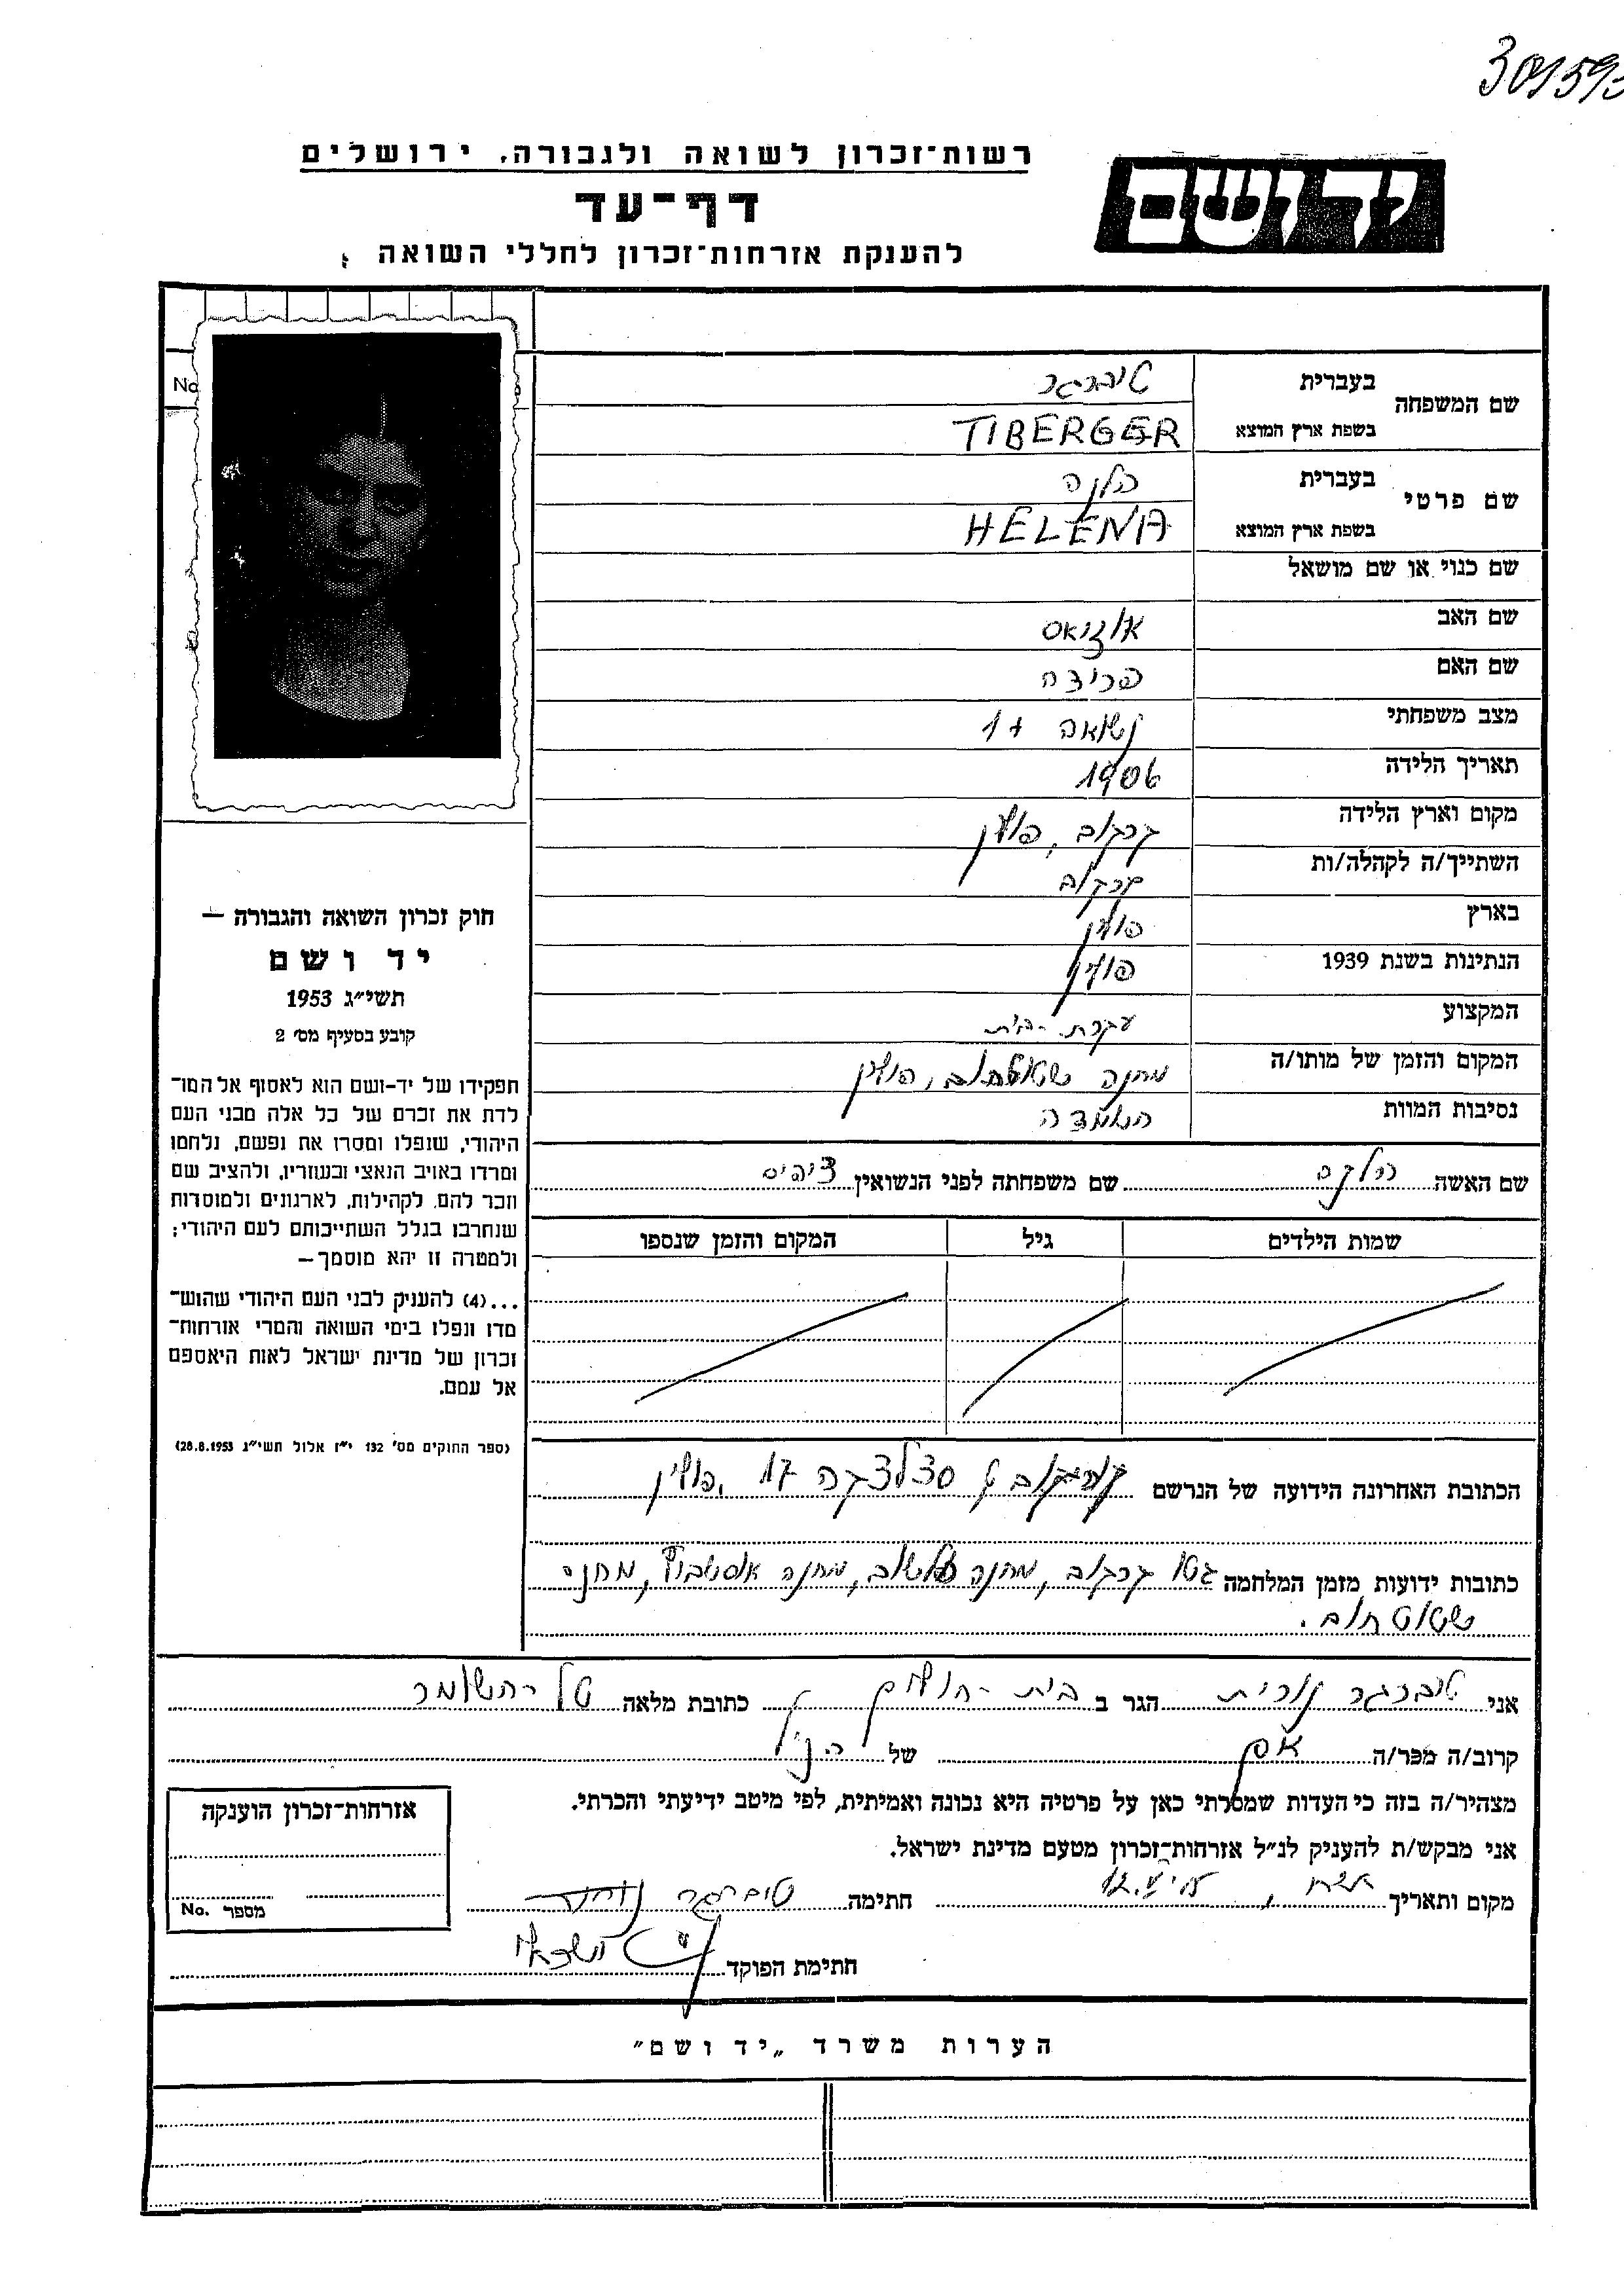 רשות־זכרון לשואה ולגבורה, ירושלים
יד ושם
דף־עד
להענקת אזרחות־זכרון לחללי השואה
No
שם המשפחה
בעברית
טיברגר
בשפת ארץ המוצא
TIBERGER
שם פרטי
בעברית
הלנה
בשפת ארץ המוצא
HELENA
שם כנוי או שם מושאל
שם האב
שם האם
מצב משפחתי נשואה + 1
תאריך הלידה 1906
מקום וארץ הלידה קרקוב, פולין
השתייך/ה לקהלה/ות קרקוב
בארץ פולין
הנתינות בשנת 1939 פולין
המקצוע עקרת-בית
המקום והזמן של מותו/ה מחנה שטוטהוב, פולין
נסיבות המוות השמדה
שם האשה הלנה שם משפחתה לפני הנשואין
שמות הילדים גיל המקום והזמן שנספו
הכתובת האחרונה הידועה של הנרשם 17, פולין
כתובות ידועות מזמן המלחמה גטו קרקוב, מחנה פלשוב, מחנה אושביץ, מחנה
שטוטהוב.
חוק זכרון השואה והגבורה —
יד ושם
תשי״ג 1953
קובע בסעיף מס׳ 2
תפקידו של יד-ושם הוא לאסוף אל המו־
לדת את זכרם של כל אלה מבני העם
היהודי, שנפלו ומסרו את נפשם, נלחמו
ומרדו באויב הנאצי ובעוזריו, ולהציב שם
וזכר להם, לקהילות, לארגונים ולמוסדות
שנחרבו בגלל השתייכותם לעם היהודי;
ולמטרה זו יהא מוסמך—
...(4) להעניק לבני העם היהודי שהוש־
מדו ונפלו בימי השואה והמרי אזרחות־
זכרון של מדינת ישראל לאות היאספם
אל עמם.
(ספר החוקים מס׳ 132 י״ז אלול תשי״ג 28.8.1953)
אני טיברגר נורית הגר ב בית-חולים כתובת מלאה תל-השומר
קרוב/ה מכר/ה של הנ״ל
מצהיר/ה בזה כי העדות שמסרתי כאן על פרטיה היא נכונה ואמיתית, לפי מיטב ידיעתי והכרתי.
אני מבקש/ת להעניק לנ״ל אזרחות־זכרון מטעם מדינת ישראל.
מקום ותאריך חתימה טיברגר נורית
חתימת הפוקד
אזרחות־זכרון הוענקה
מספר No.
הערות משרד „יד ושם״